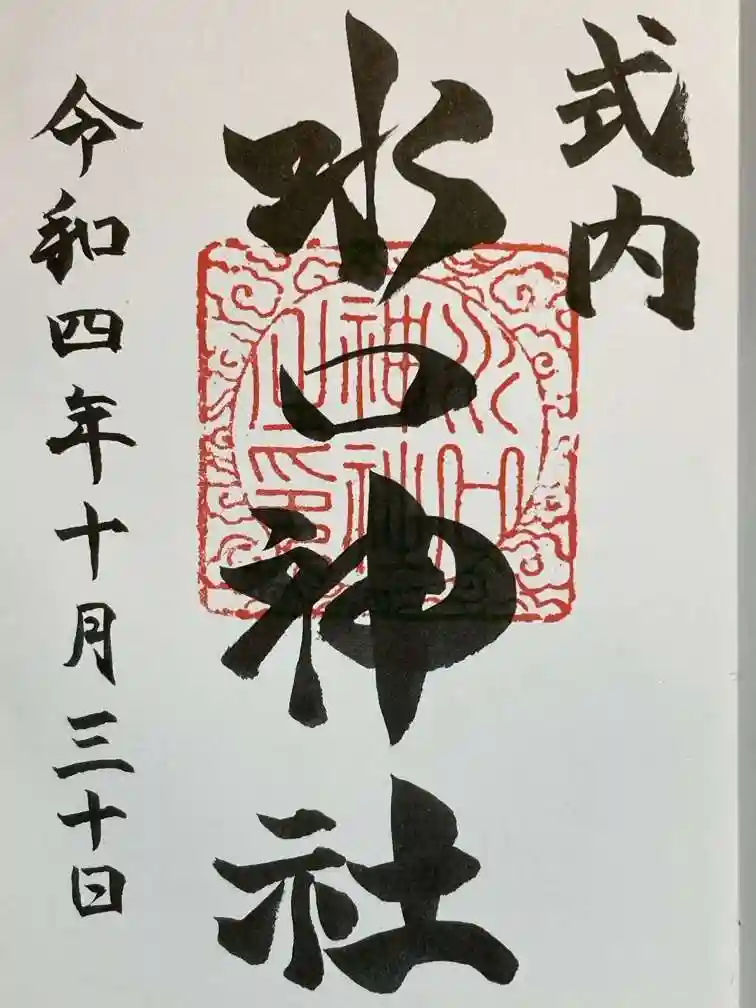 式内
水口神社
令和四年十月三十日
水口神社之印